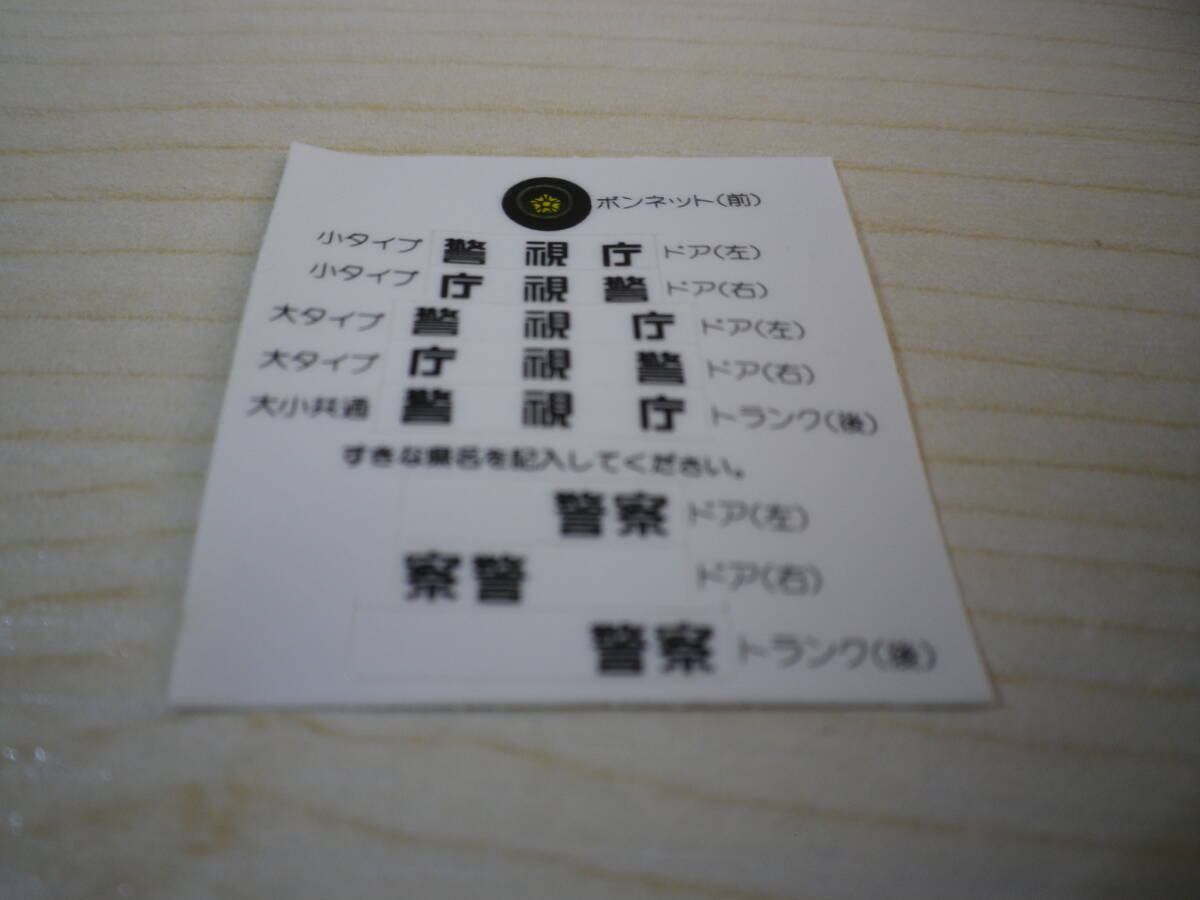 ボンネット(前)
小タイプ 警 視 庁 ドア(左)
小タイプ 庁 視 警 ドア(右)
大タイプ 警 視 庁 ドア(左)
大タイプ 庁 視 警 ドア(右)
大小共通 警 視 庁 トランク(後)
すきな県名を記入してください。
警察 ドア(左)
察警 ドア(右)
警察 トランク(後)